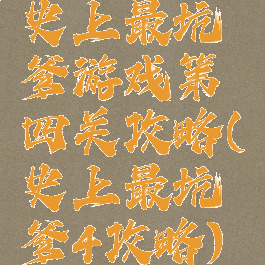 史上最坑
爹游戏第
四关攻略(
史上最坑
爹4攻略)